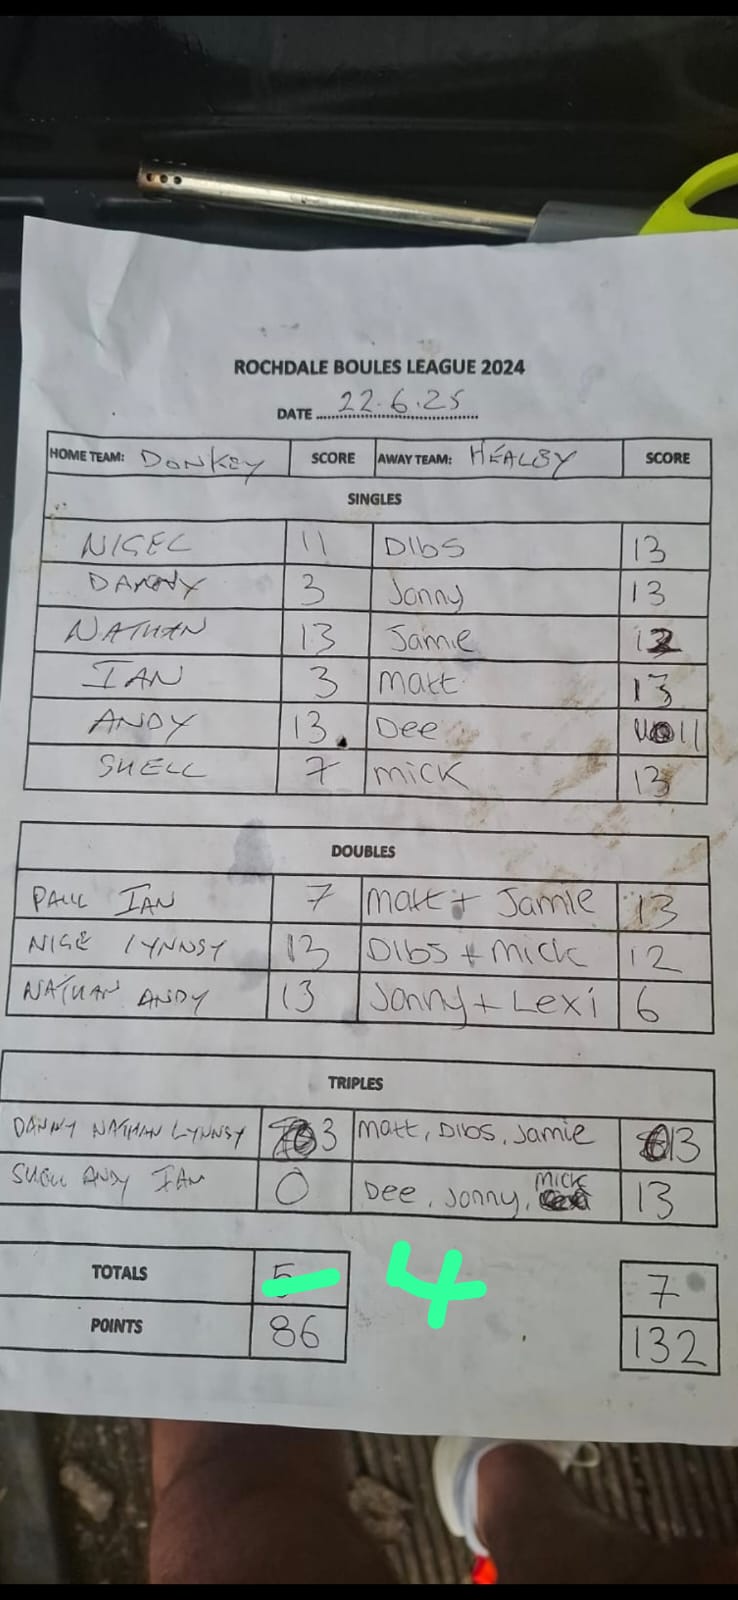 ROCHDALE BOULES LEAGUE 2024
DATE 22.6.25
HOME TEAM: DONKEY SCORE AWAY TEAM: HEALEY SCORE
SINGLES
NIGEL 11 DIbS 13
DANNY 3 Jonny 13
NATHAN 13 Jamie 12
IAN 3 Matt 13
ANDY 13 Dee 11
SHELL 7 MICK 13
DOUBLES
PAUL IAN 7 Matt + Jamie 13
NIGE LYNNSY 13 DIbS + MICK 12
NATHAN ANDY 13 Jonny + Lexi 6
TRIPLES
DANNY NATHAN LYNNSY 3 Matt, DIbS, Jamie 13
SHELL ANDY IAN 0 Dee, Jonny, MICK 13
TOTALS 5 4 7
POINTS 86 132